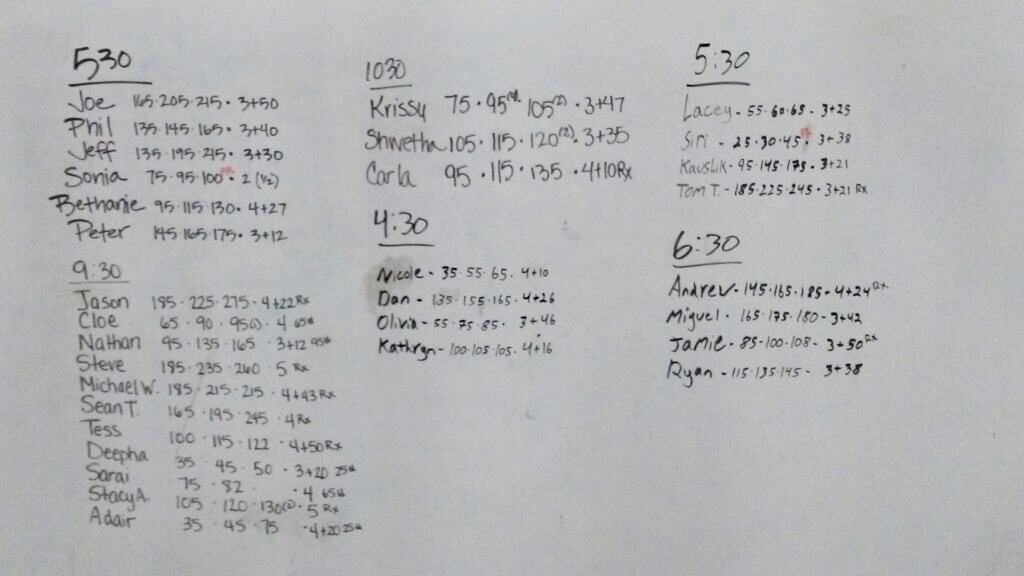 530
Joe 165·205·215· 3+50
Phil 135·145·165· 3+40
Jeff 135·195·215· 3+30
Sonia 75·95·100 · 2 (1/2)
Bethanie 95·115·130· 4+27
Peter 145·165·175· 3+12
9:30
Jason 185·225·275·4+22 Rx
Cloe 65·90·95(1)·4 65#
Nathan 95·135·165 ·3+12 95#
Steve 185·235·260 ·5 Rx
Michael W. 185·215·215 ·4+43 Rx
Sean T. 165·195·245 ·4 Rx
Tess 100·115·122 ·4+50 Rx
Deepha 35·45·50·3+20 25#
Sarai 75·82 · ·4 65#
Stacy A. 105·120·130(2)·5 Rx
Adair 35·45·75 ·4+20 25#
1030
Krissy 75·95 105(2)·3+47
Shwetha 105·115·120(2)·3+35
Carla 95·115·135 ·4+10 Rx
4:30
Nicole - 35·55·65· 4+10
Dan - 135·155·165·4+26
Olivia - 55·75·85· 3+46
Kathryn - 100·105·105· 4+16
5:30
Lacey - 55·60·65· 3+25
Siri - 25·30·45· 3+38
Kaushik - 95·145·175· 3+21
TOM T. - 185·225·245·3+21 Rx
6:30
Andrew - 145·165·185·4+24 Rx
Miguel · 165·175·180 - 3+42
Jamie - 85·100·108 - 3+50 Rx
Ryan - 115·135·145 - 3+38